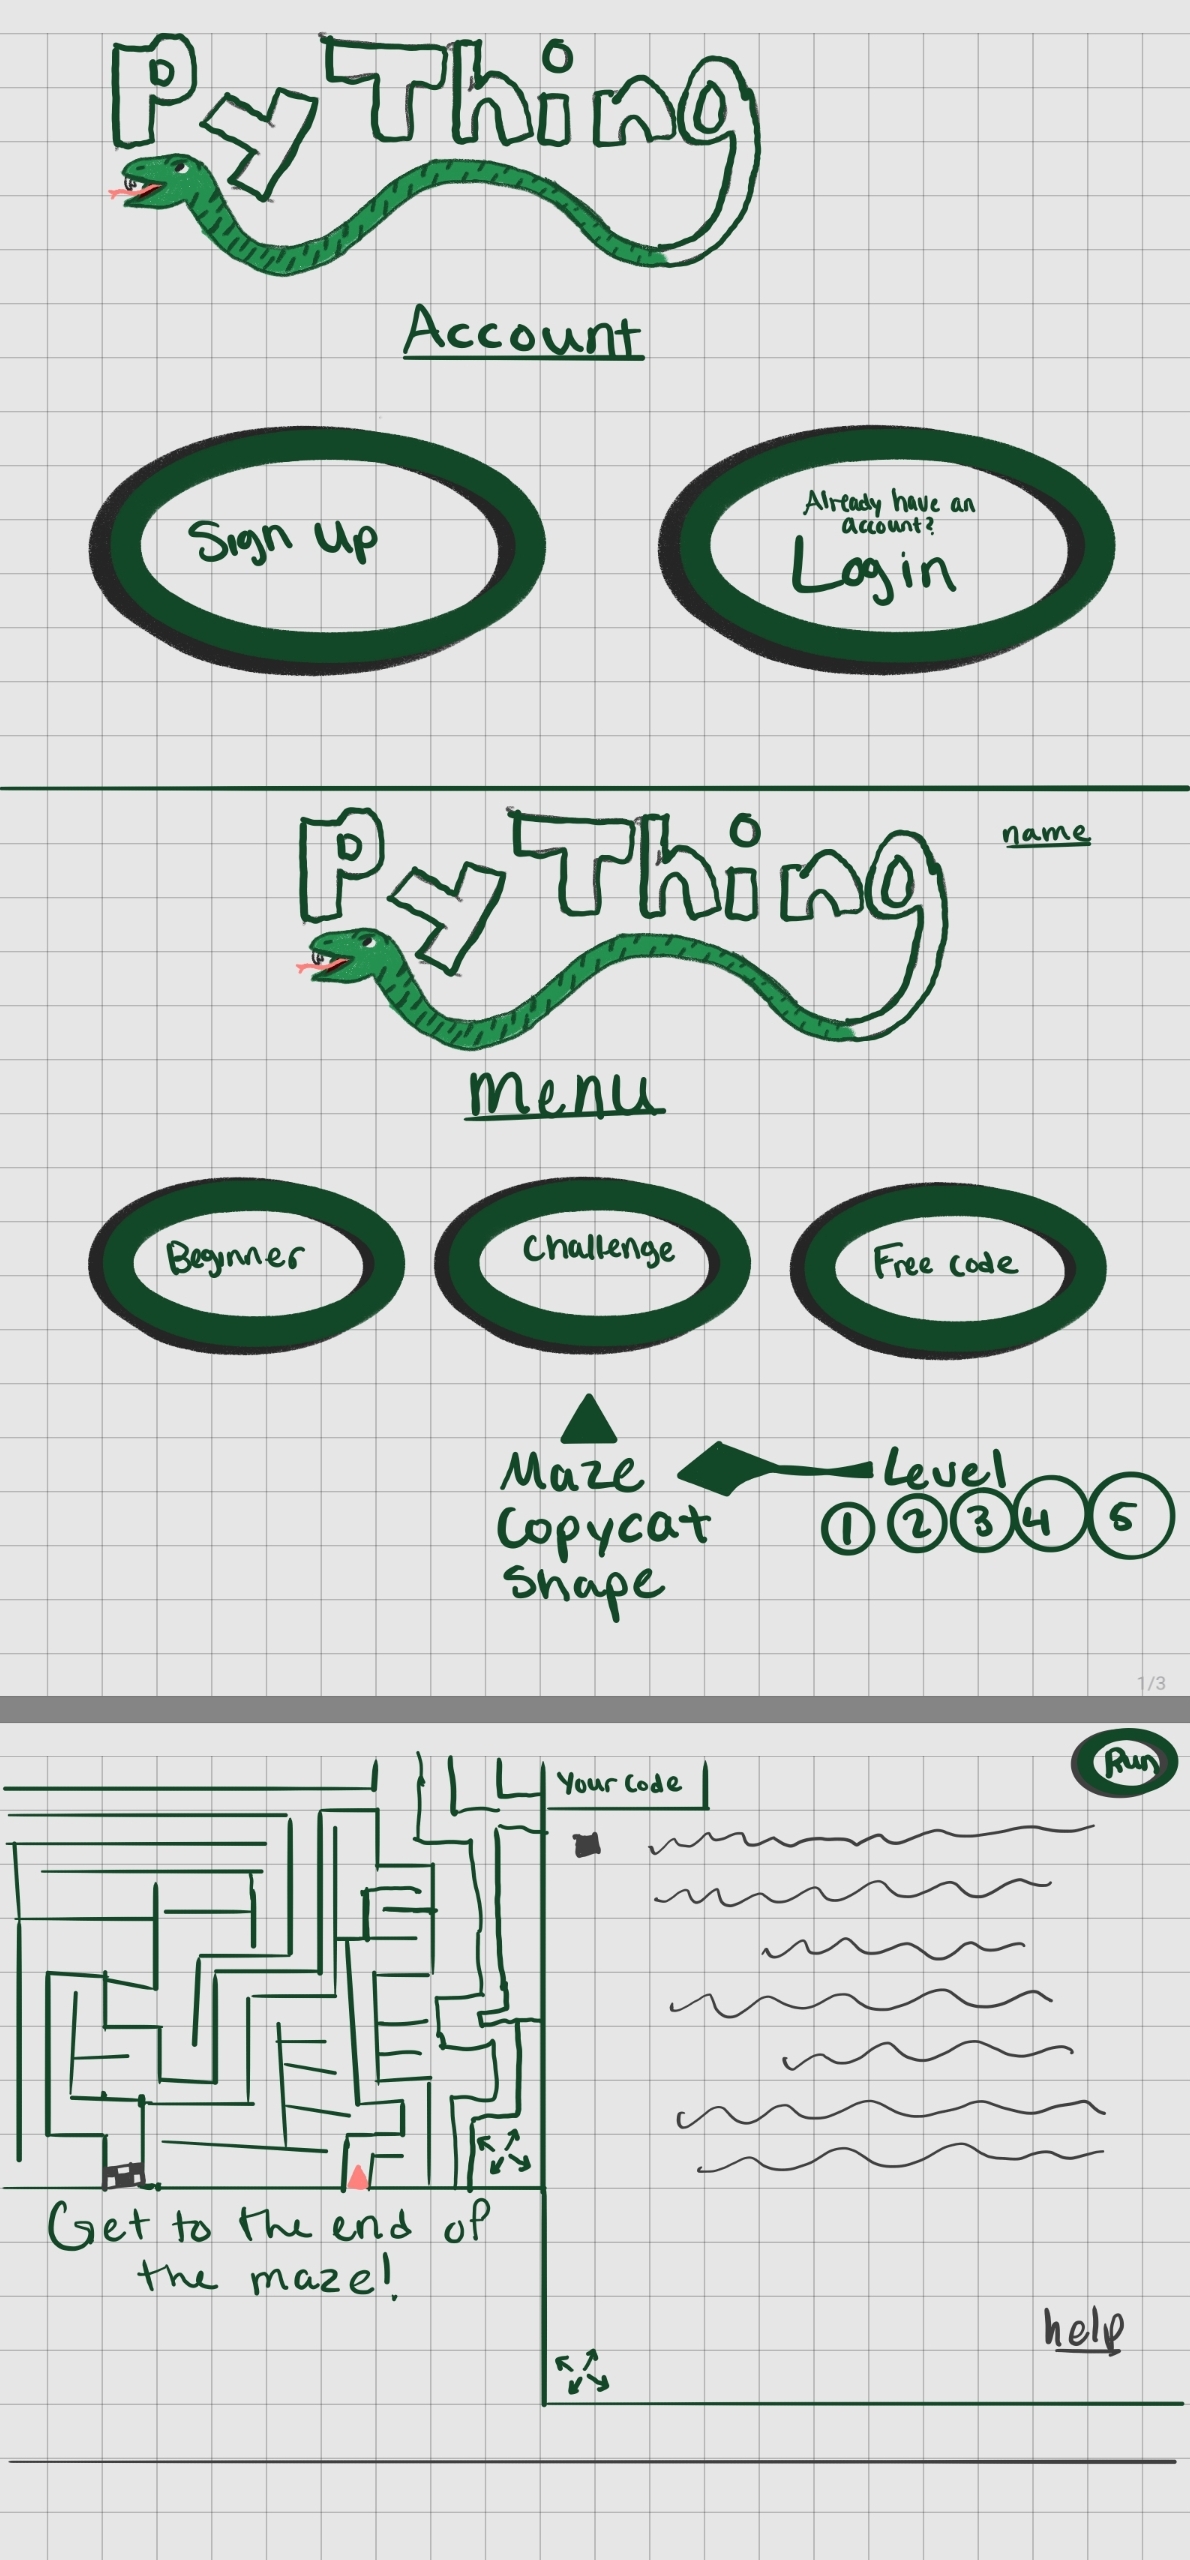 PyThing
Account
Sign Up
Already have an
account?
Login
PyThing
name
Menu
Beginner
Challenge
Free code
Maze
Level
Copycat
1 2 3 4 5
Shape
1/3
Your Code
Run
Get to the end of
the maze!
help